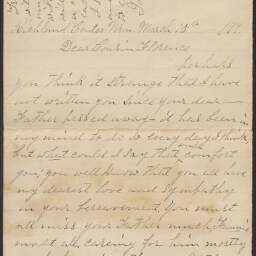 Richland Center Wis. March 18th 189
Dear Cousin Florence
Perhaps
you think it strange that I have
not written you since your dear
Father passed away - it has been in
my mind to do so every day I think
but what could I say that would comfort
you, you well know that you all have
my dearest love and sympathy
in your bereavement. You must
all miss your Father much
most all, caring for him mostly